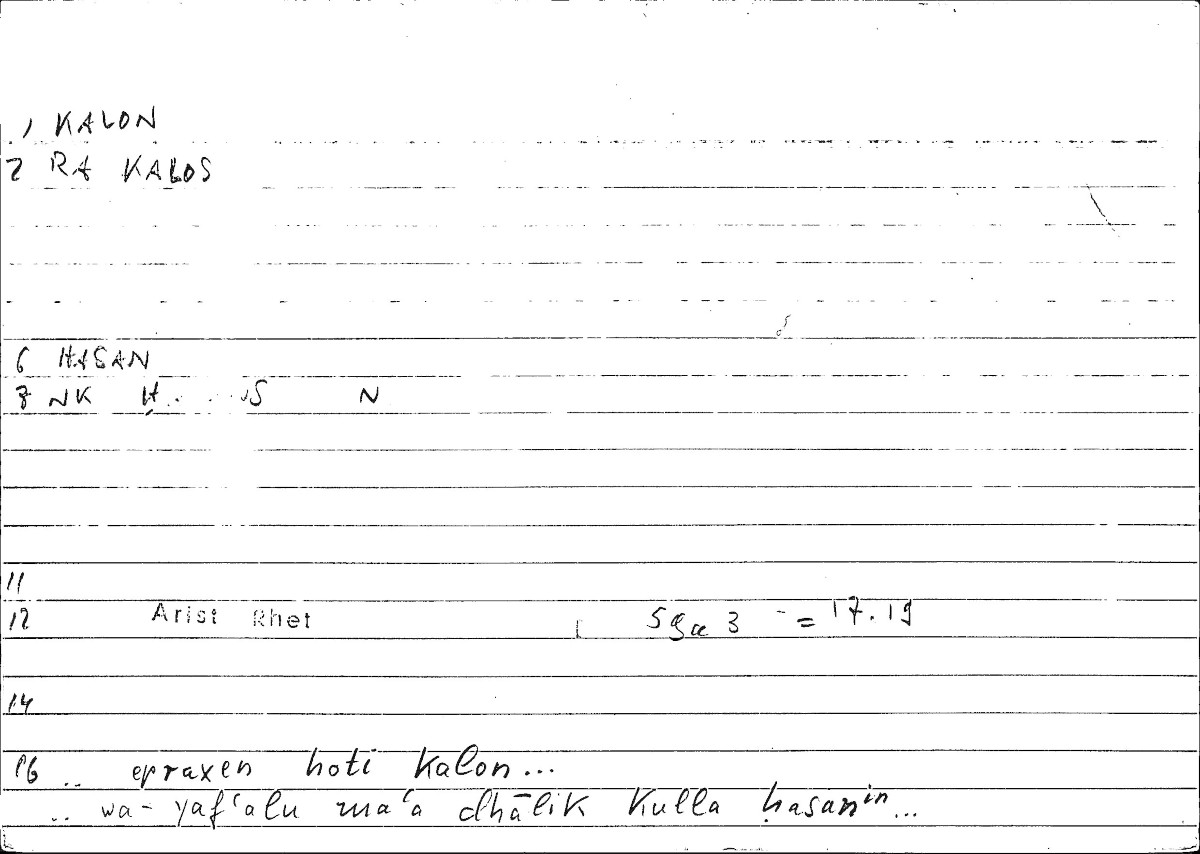 1 KALON
2 RA KALOS
6 HASAN
NK
11
12 Arist Rhet 59a 3 = 17.19
14
16 .. epraxen hoti kalon...
.. wa-yaf‘alu ma‘a dhālik kulla ḥasanⁱⁿ...